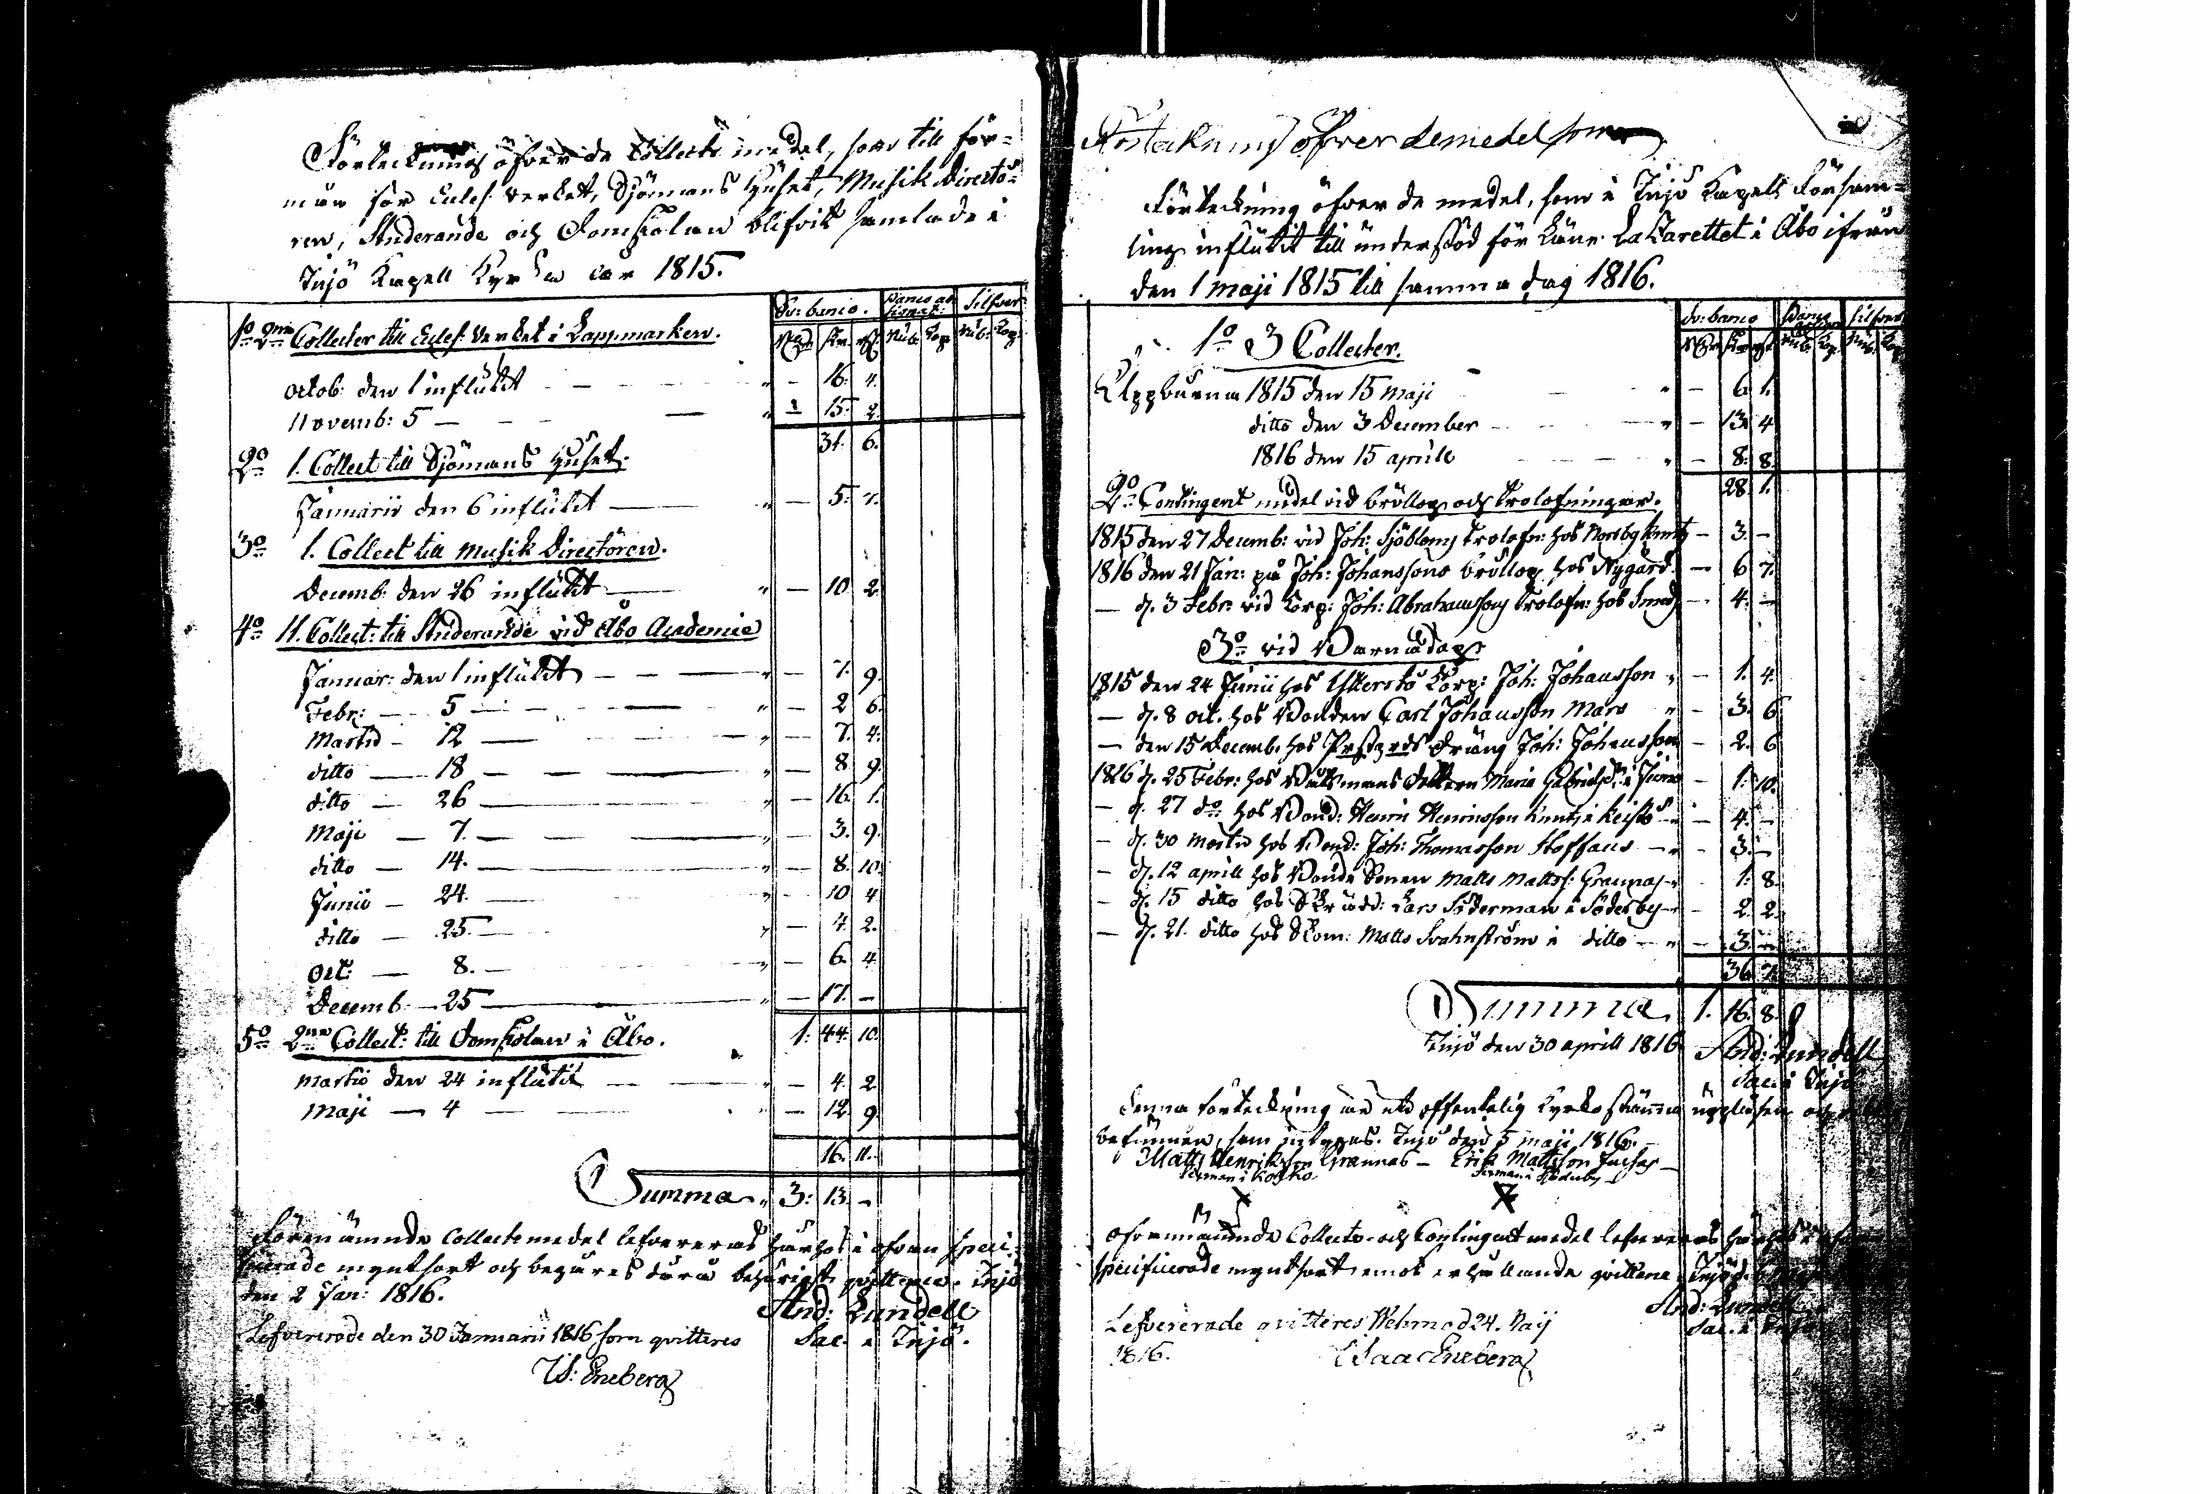 Förteckning öfver de Collects medel, som till för-
mån för Eccles: verket, Sjömans Huset, Musik Directö-
ren, Studerande och Domskolan blifvit samlade i
Injö Kapell Kyrka år 1815.
Sv: banco. Banco as: Silfver
Rdr Sk. rst. Rub. Kop. Rub. Kop.
1o 2ne Collecter till Eccles: Verket i Lappmarken.
Octob: den 1 influtit — " — 16. 4.
Novemb: 5 — " — 15. 2.
31. 6.
2o 1. Collect till Sjömans Huset.
Januarii den 6 influtit — " — 5. 7.
3o 1. Collect till Musik Directören.
Decemb: den 26 influtit — " — 10 2.
4o 11. Collect: till Studerande vid Åbo Academie
Januar: den 1 influtit — — 7. 9.
Febr: — 5 — " — 2 6.
Martii — 12 — " — 7. 4.
ditto — 18 — " — 8 9.
ditto — 26 — " — 16. 1.
Maji — 7. — " — 3. 9.
ditto — 14. — " — 8. 10.
Junii — 24. — — 10 4
ditto — 25. — " — 4. 2.
Oct: — 8. — " — 6. 4.
Decemb. — 25 — " — 17. —
5o 2ne Collect: till Domskolan i Åbo. 1. 44. 10.
Martii den 24 influtit — " — 4. 2
Maji — 4 — — 12. 9
16. 11.
Summa " 3: 13. —
Förenämnde Collectsmedel lefvereras härhos i ofvan speci-
ficerade myntsort och begäres därå behörigt qvittence. Injö
den 2 Jan: 1816. And: Lundell
Lefvererade den 30 Januarii 1816 som qvitteres Sac. i Injö.
Is: Eneberg
Förtekning öfver de medel som
Förteckning öfver de medel, som i Injö Kapells Försam-
ling influtit till understöd för Läns Lazarettet i Åbo ifrån
den 1 Maji 1815 till samma dag 1816.
Sv: banco Banco Silfver
1o 3 Collecter.
Uppburna 1815 den 15 Maji — " — 6. 1.
ditto den 3 December — " — 13. 4
1816 den 15 Aprill — " — 8. 8.
28. 1.
2o Contingent medel vid bröllop och trolofningar.
1815 den 27 Decemb: vid Joh: Sjöbloms trolofn: hos Norrby — 3. —
1816 den 21 Jan: på Joh: Johanssons bröllop hos Nygård — 6 7.
— d. 3 Febr: vid Corp: Joh: Abrahamssons trolofn: hos Smeds — 4. —
3o vid Barndop
1815 den 24 Junii hos Corp: Joh: Johansson " — 1. 4.
— d. 8 Oct. hos Bonden Carl Johansson Mars " — 3. 6
— den 15 Decemb. hos Prestgårds Dräng Joh: Johansson — 2. 6
1816 d. 25 Febr: hos Maria — 1. 10.
— d. 27 do hos Bond: Henric Henricsson — 4. —
— d. 30 Martii hos Bond: Joh: Thomasson Stoffans — " — 3. —
— d. 12 Aprill hos Bonde Sonen Matts Matts: Grannas — 1. 8.
— d. 15 ditto hos Skrädd: Lars Söderman i Söderby — " — 2. 2.
— d. 21. ditto hos Skom: Matts Svahnström i ditto — " — 3. —
36. 7.
Summa. 1. 16. 8.
Injö den 30 Aprill 1816 And: Lundell
Sac. i Injö
Denna förteckning är uti offentelig Kyrko stämma uppläsen och
befunnen, som intygas. Injö den 5 Maji 1816.
Matts Henriksson Grannas — Erik Mattsson
X X
Ofvannämnde Collects- och Contingent medel lefvereras härhos i ofvan
specificerade myntsort emot erhållande qvittence. Injö
And: Lundell
Lefvererade qvitteres Wehmo d 24. Maij Sac. i Injö
1816. Isaac Eneberg